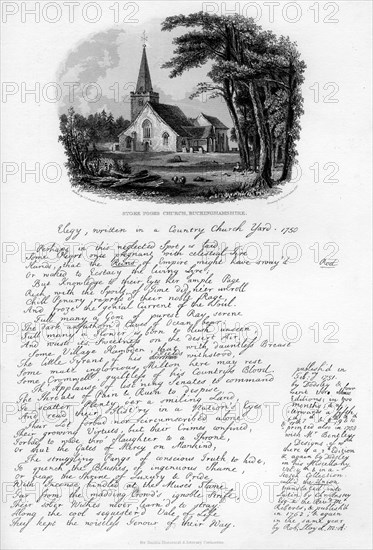 STOKE POGES CHURCH, BUCKINGHAMSHIRE.
Elegy, written in a Country Church Yard. 1750
Perhaps in this neglected Spot is laid
Some Heart once pregnant with celestial Fire
Hands, that the Reins of Empire might have sway'd Rod
Or waked to Ecstacy the living Lyre,
But Knowledge to their Eyes her ample Page
Rich with the Spoils of Time did ne'er unroll
Chill Penury repress'd their noble Rage
And froze the genial Current of the Soul.
Full many a Gem of purest Ray serene
The dark unfathom'd Caves of Ocean bear;
Full many a Flower is born to blush unseen
And waste its Sweetness on the desert Air.
Some Village Hampden that with dauntless Breast
The little Tyrant of his withstood,
Some mute inglorious Milton here may rest
Some Cromwell guiltless of his Country's Blood.
The Applause of list'ning Senates to command
The Threats of Pain & Ruin to despise,
To scatter Plenty o'er a smiling Land,
And read their Hist'ry in a Nation's Eyes
Their Lot forbad nor circumscribed alone
Their growing Virtues, but their Crimes confined,
Forbad to wade thro' Slaughter to a Throne,
Or shut the Gates of Mercy on Mankind,
The struggling Pangs of conscious Truth to hide,
To quench the Blushes of ingenuous Shame,
Or heap the Shrine of Luxury & Pride
With Incense, kindled at the Muse's Flame
Far from the madding Crowd's ignoble Strife,
Their sober Wishes never learn'd to stray
Along the cool sequester'd Vale of Life
They kept the noiseless Tenour of their Way.
publish'd in
Feb:ry 1751,
by Dodsley &
went thro' four
Editions, in two
months;
printed also in 1753
with Mr Bentley's
Designs, of wch
there is a 2d Edition
& again by Dodsley
in his Miscellany,
Vol: 4th & in a
Scotch Collection
call'd the Union.
translated into
Latin by Chr: Anstey
Esq, & the Revd Mr
Roberts, & publish'd
in 1762; & again
in the same year
by Rob: Lloyd, M:A: